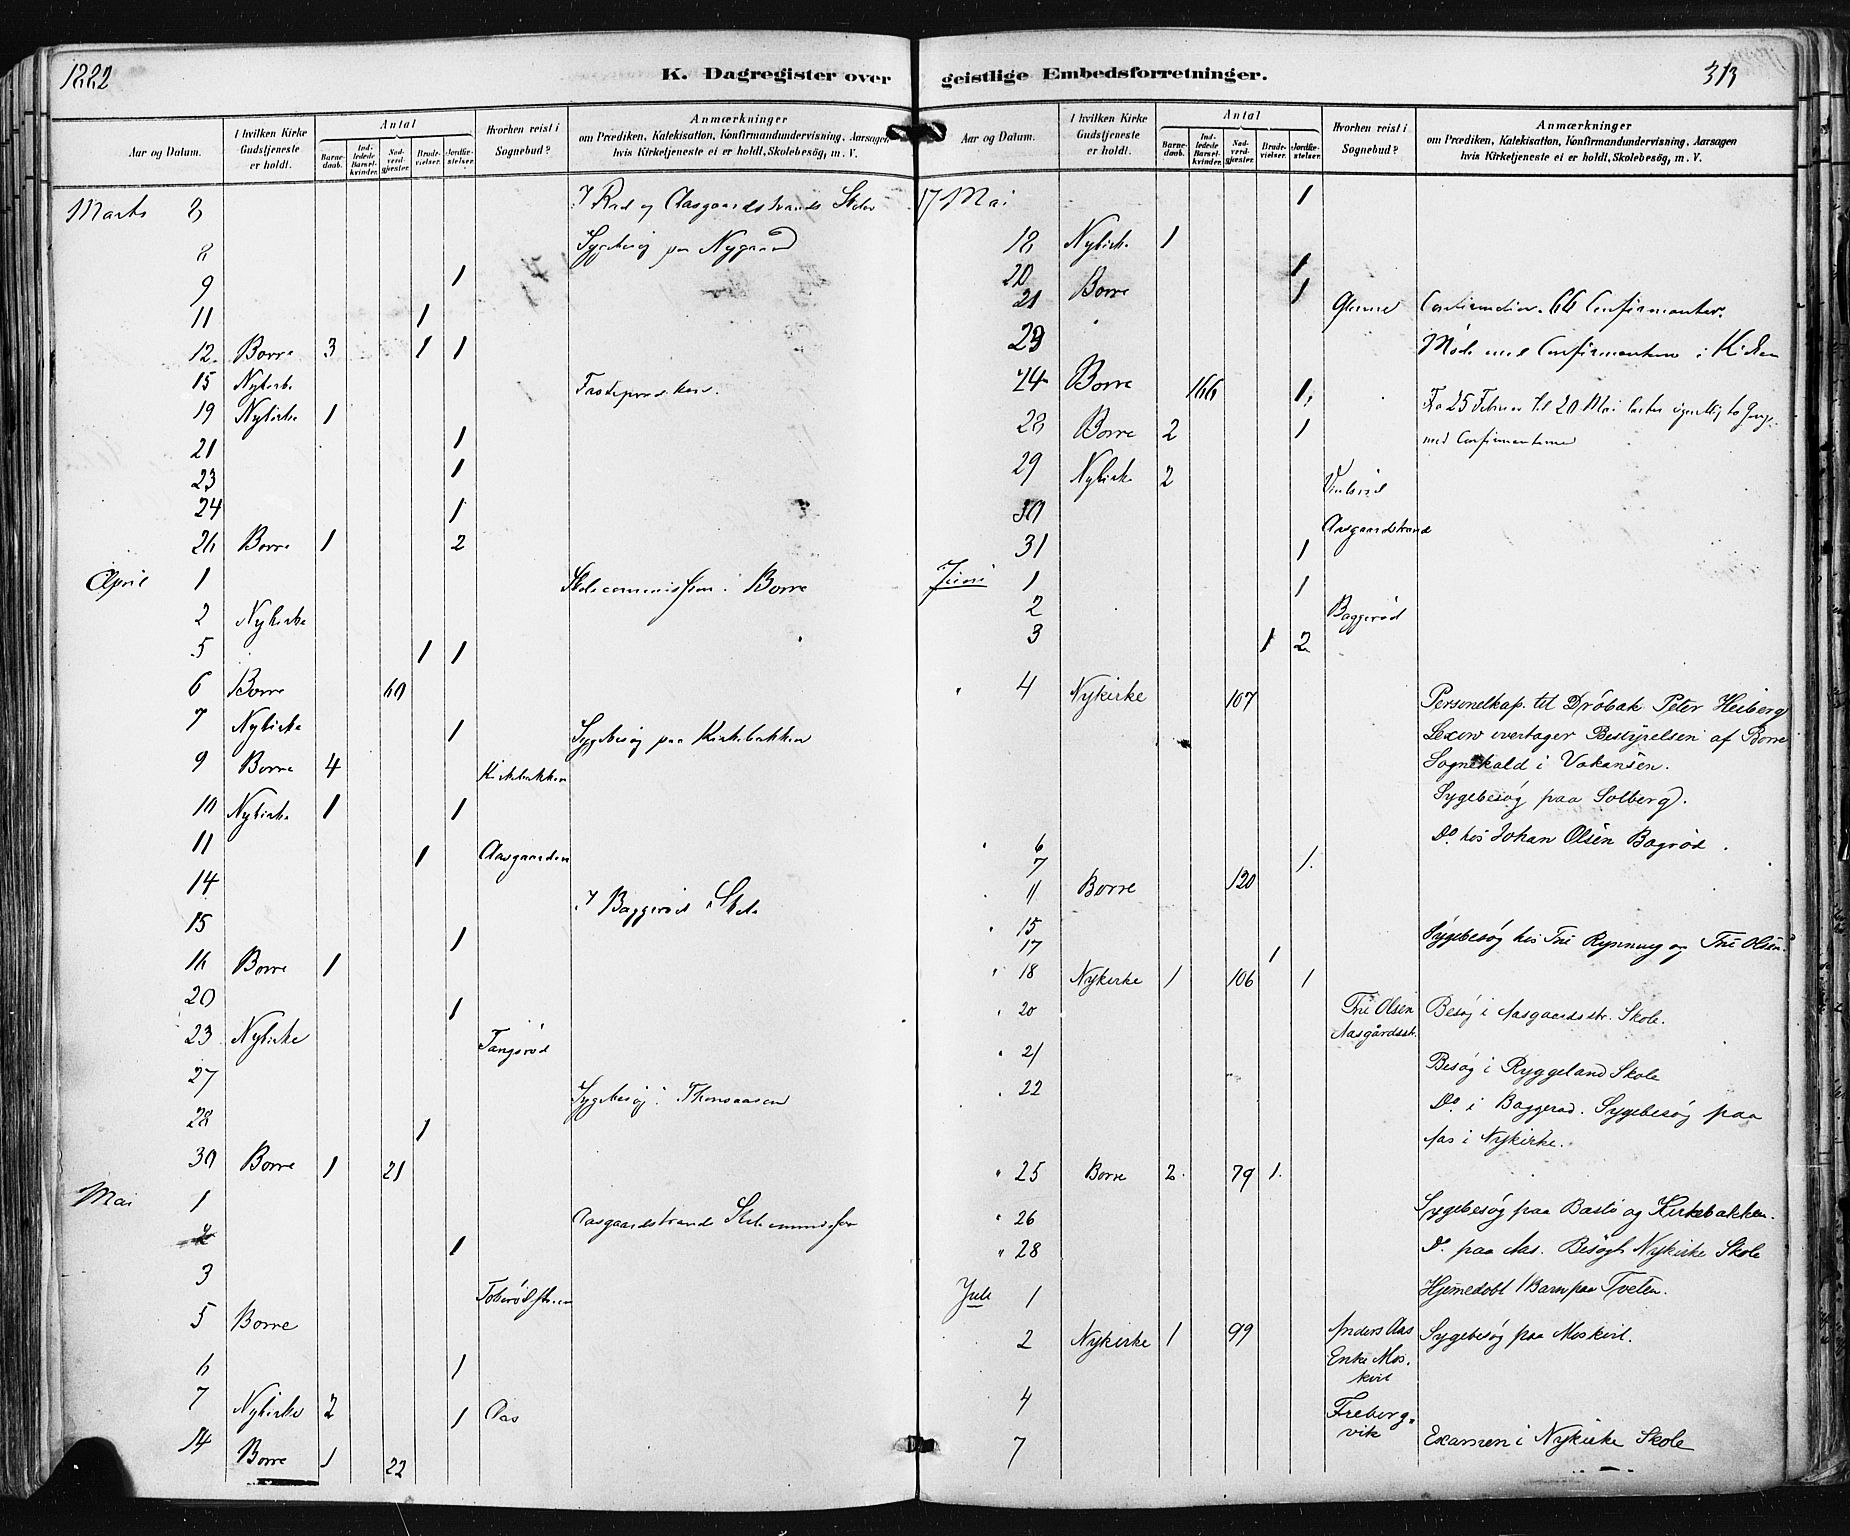 1882
K. Dagregister over
Aar og Datum.
I hvilken Kirke Gudstjeneste er holdt.
Antal
Barnedaab.
Indledede Barselkvinder.
Nadverdgjester.
Brudevielser.
Jordfæstelser.
Hvorhen reist i Sognebud?
Anmærkninger
om Prædiken, Katekisation, Konfirmandundervisning, Aarsagen
hvis Kirketjeneste ei er holdt, Skolebesøg, m. V.
Marts 8 I Rød og Aasgaardstrands Skoler
8 Sygebesøg paa Nygaard
9 1
11 1
12. Borre 3 1 1
15 Nykirke Fasteprædiken.
19 Nykirke 1
21 1
23 1
24 1
26 Borre 1 2
April 1 Skolecommission i Borre
2 Nykirke
5 1 1
6 Borre 60
7 Nykirke 1 Sygebesøg paa Kirkebakken
9 Borre 4 Kirkebakken
10 Nykirke 1 1
11 1 Aasgaarden
14 I Baggerød Skole
15 1
16 Borre 1
20 1
23 Nykirke Tangsrød
27 Sygebesøg i Thonsaasen
28 1
30 Borre 1 21
Mai 1 Aasgaardstrands Skolecommission
1
3
5 Borre
6 1
7 Nykirke 2 1 Aas
14 Borre 1 22
geistlige Embedsforretninger.
313
Aar og Datum.
I hvilken Kirke Gudstjeneste er holdt.
Antal
Barnedaab.
Indledede Barselkvinder.
Nadverdgjester.
Brudevielser.
Jordfæstelser.
Hvorhen reist i Sognebud?
Anmærkninger
om Prædiken, Katekisation, Konfirmandundervisning, Aarsagen
hvis Kirketjeneste ei er holdt, Skolebesøg, m. V.
17 Mai 1
18 Nykirke 1
20 1
21 Borre 1 Confirmation. 66 Confirmanter.
23 Møde med Confirmanterne i Kirken
24 Borre 166 1
Fra 25 Februar til 20 Mai
28 Borre 2 1 med Confirmanterne
29 Nykirke 2
30 Aasgaardstrand
31 1
Juni 1 1
2 Baggerød
3 1 2
" 4 Nykirke 107 Personelkap. til Drøbak Peter Heiberg
Lexow overtager Bestyrelsen af Borre
Sognekald i Vakansen.
Sygebesøg paa Solberg.
" 6 Do. hos Johan Olsen Bagrød.
7 1.
" 11 Borre 120
" 15 Sygebesøg hos Thi Rynning og Thi Olsen.
17 1
" 18 Nykirke 1 106 1
" 20 Thi Olsen Aasgårdsstr. Besøg i Aasgaardsstr. Skole.
" 21 Besøg i Ryggeland Skole
" 22 Do. i Baggerød. Sygebesøg paa
Aas i Nykirke.
" 25 Borre 2. 79 1.
" 26 Sygebesøg paa Bastø og Kirkebakken.
" 28 Do. paa Aas. Besøgt Nykirke Skole
Juli 1 Hjemedøbt 1 Barn paa Tveten.
2 Nykirke 1 99 Anders Aas Enke Moskvil Sygebesøg paa Moskvil.
4 Frebergvik
7 Examen i Nykirke Skole